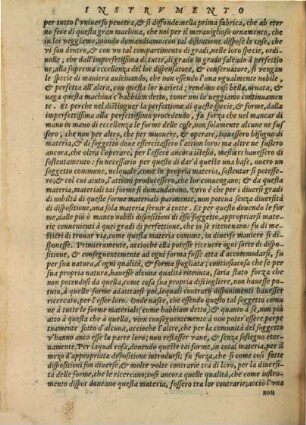 INSTRVMENTO
per tutto l'vniuerso penetra, & si diffonde nella prima fabrica, che ab eter
no fece di questa gran machina, che noi per il merauiglioso ornamento, che
in lei veggiamo, mondo
vi sun dentro, & con vn tal compartimento di gradi, nelle loro specie, ordi-
nolle; che dall'imperfettissima di tutte, di grado in grado salendo à perfettio
ne, alla suprema eccellenza del lui dispensatore, & conseruatore, si vengan
le specie di maniera auicinando, che non essendo l'vna vgualmente nobile,
& perfetta all'altra, con questa lor varietà; vendono così bella, ornata, &
uaga questa machina
Et perche nel distinguer la perfettione, di queste specie, & forme, dalla
imperfettissima alla perfettissima procedendo, fu forza che nel mancar di
mano in mano di eccellenza le forme delle cose, non solamente alcune ne fus
sero, che non per altro, che per muouere, & operare, hauessero bisogno di
materia, & di soggetto doue esercitassero l'attion loro: ma altre ne fussero
ancora, che oltra l'operare, per l'essere ancora istesso, mostrassero bisogno di
sostentamento: fu necessario per questo di dar' à queste una base, ouero un
soggetto commune, nelquale, come in propria materia, sostentar si potesse-
ro, & con cui aiuto, l'attioni producessero, che lor conuengano: & da questa
materia, materiali tai forme si domandarono. Vero è che per i diuersi gradi
di nobiltà di queste forme materiali parimente, non potea senza diuersità
di dispositione, vna sola materia seruir à tutte. Et perche douendo quelle for
me, alle più ò manco nobili dispositioni di esso soggetto, appropriarsi mate-
rie conueneuoli à quei gradi di perfettione, che in se riteneuano: fu di me
stieri di trouar via, come questa materia commune, in diuerse maniere si di-
sponesse. Primieramente, accioche ella potesse riceuere ogni sorte di disposi-
tione, & conseguentemente ad ogni forma fusse atta d'accommodarsi, fu
per sua natura, d'ogni qualità, & forma spogliata:
sua propria natura, hauesse alcuna qualità ritenuta, saria stato forza che
non potendo ella, come cosa sua propria discioglersene, non hauesse po-
tuto, à quelle forme adattarsi poi, lequali contrari disponimenti hauesser
ricercato, per l'esser loro. Onde nasce, che essendo questo tal soggetto comu
ne à tutte le forme materiali; come habbiam detto, & quanto à se, non più
atto à quella che à questa, vien conseguentemente à non poter essere perpe
tuamente sotto d'alcuna, accioche l'altre, che per la comunità del soggetto
v'hanno anco esse la parte loro; non restasser vane, & senza sostegno eter-
namente. Per laqual cosa, douendo queste tai forme, in cotal materia, per il
mezo d'appropriate dispositioni introdursi; fu forza, che si come così fatte
dispositioni son diuerse, & molte volte contrarie tra di loro, per la diuersi-
tà delle forme, che le ricercano; così ancora quelle qualità, che come instru-
mento
non